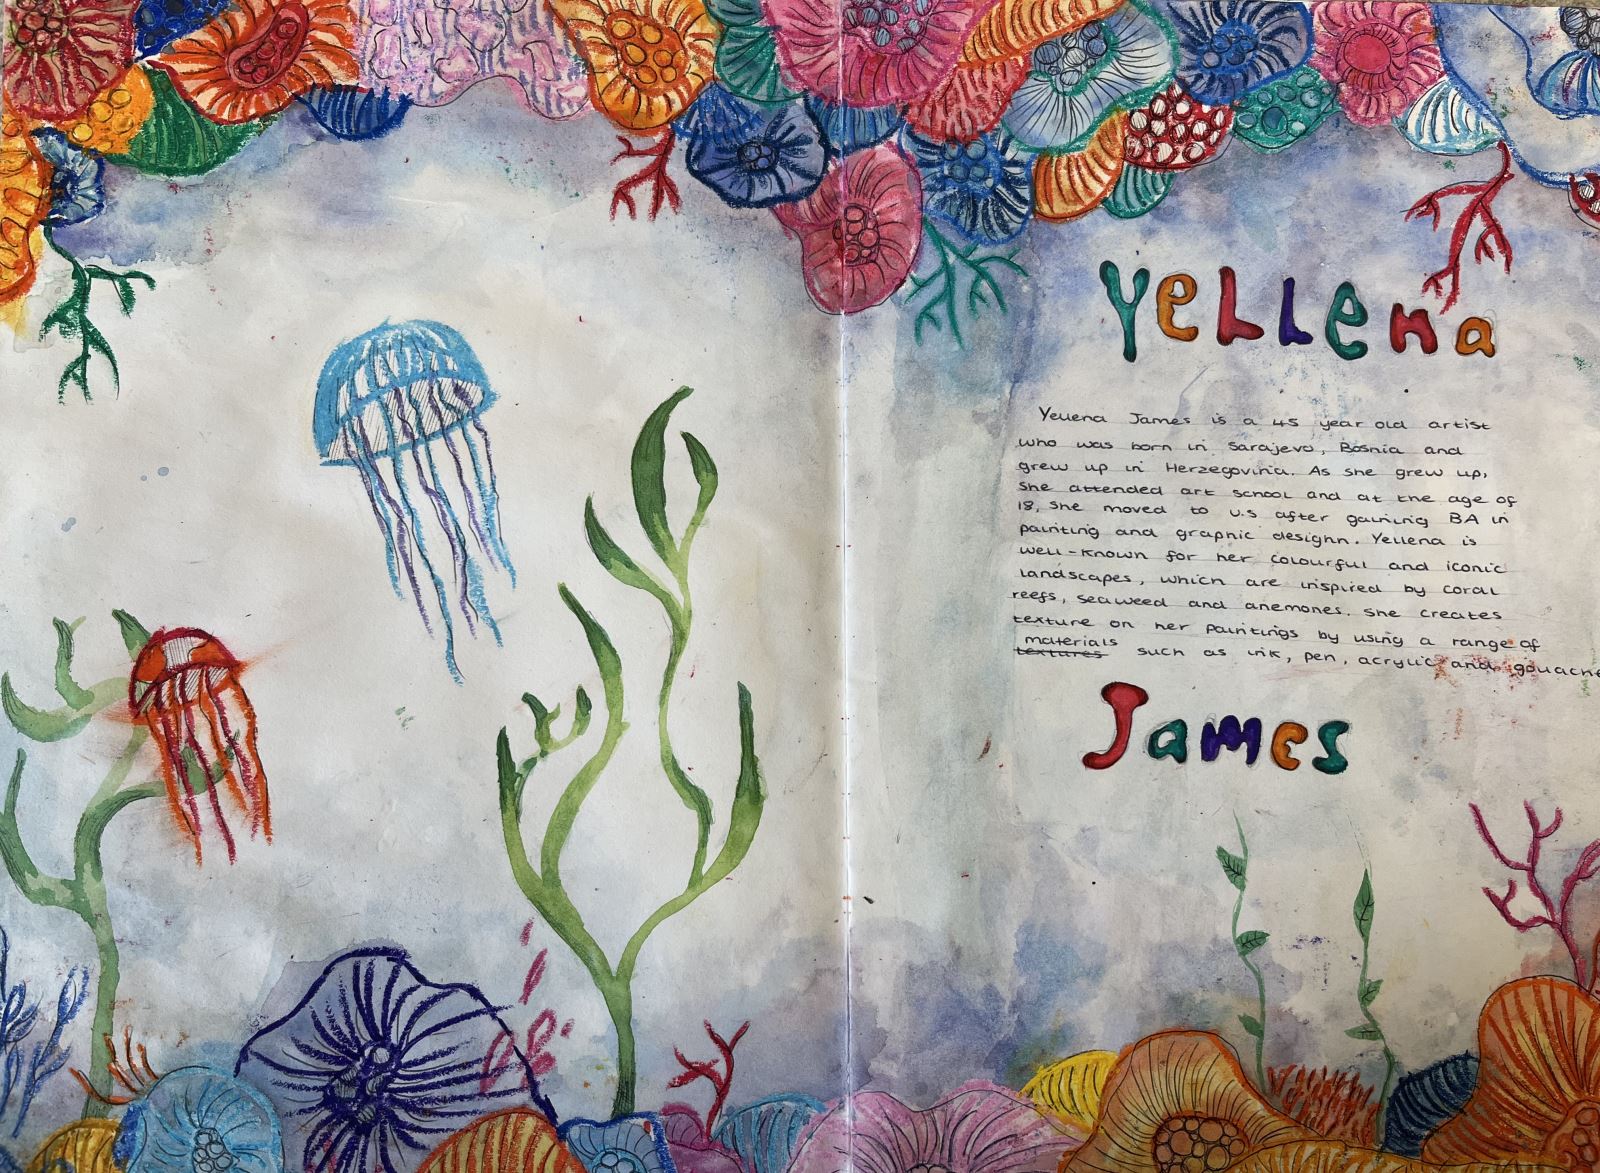 Yellena
Yellena James is a 45 year old artist
who was born in Sarajevo, Bosnia and
grew up in Herzegovinia. As she grew up,
she attended art school and at the age of
18, she moved to U.S after gaining BA in
painting and graphic designn. Yellena is
well-known for her colourful and iconic
landscapes, which are inspired by coral
reefs, seaweed and anemones. She creates
texture on her paintings by using a range of
materials
textures such as ink, pen, acrylic and gouache
James